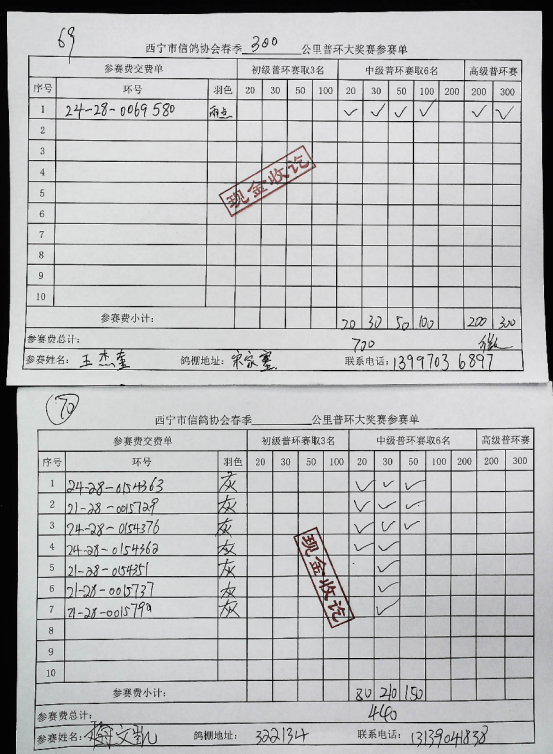 69
西宁市信鸽协会春季 300 公里普环大奖赛参赛单
参赛费交费单 初级普环赛取3名 中级普环赛取6名 高级普环赛
序号 环号 羽色 20 30 50 100 20 30 50 100 200 200 300
1 24-28-0069580 雨点 ✓ ✓ ✓ ✓ ✓ ✓
2
3
4
5
6
7
8
9
10
现金收讫
参赛费小计: 20 30 50 100 200 300
参赛费总计: 700
参赛姓名: 王杰奎 鸽棚地址: 宋家寨 联系电话: 13997036897
70
西宁市信鸽协会春季 公里普环大奖赛参赛单
参赛费交费单 初级普环赛取3名 中级普环赛取6名 高级普环赛
序号 环号 羽色 20 30 50 100 20 30 50 100 200 200 300
1 24-28-0154363 灰 ✓ ✓ ✓
2 21-28-0015729 灰 ✓ ✓ ✓
3 24-28-0154376 灰 ✓ ✓ ✓
4 24-28-0154362 灰 ✓ ✓
5 21-28-0154351 灰 ✓
6 21-28-0015737 灰 ✓
7 21-28-001579 灰 ✓
8
9
10
现金收讫
参赛费小计: 80 210 150
参赛费总计: 440
参赛姓名: 文凯 鸽棚地址: 322134 联系电话: 13139041838